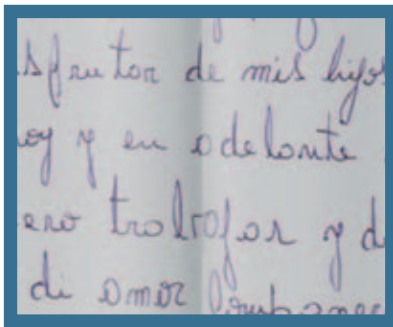 sfrutar de mis hijos
oy y en adelante
ero trabajar y d
di amor